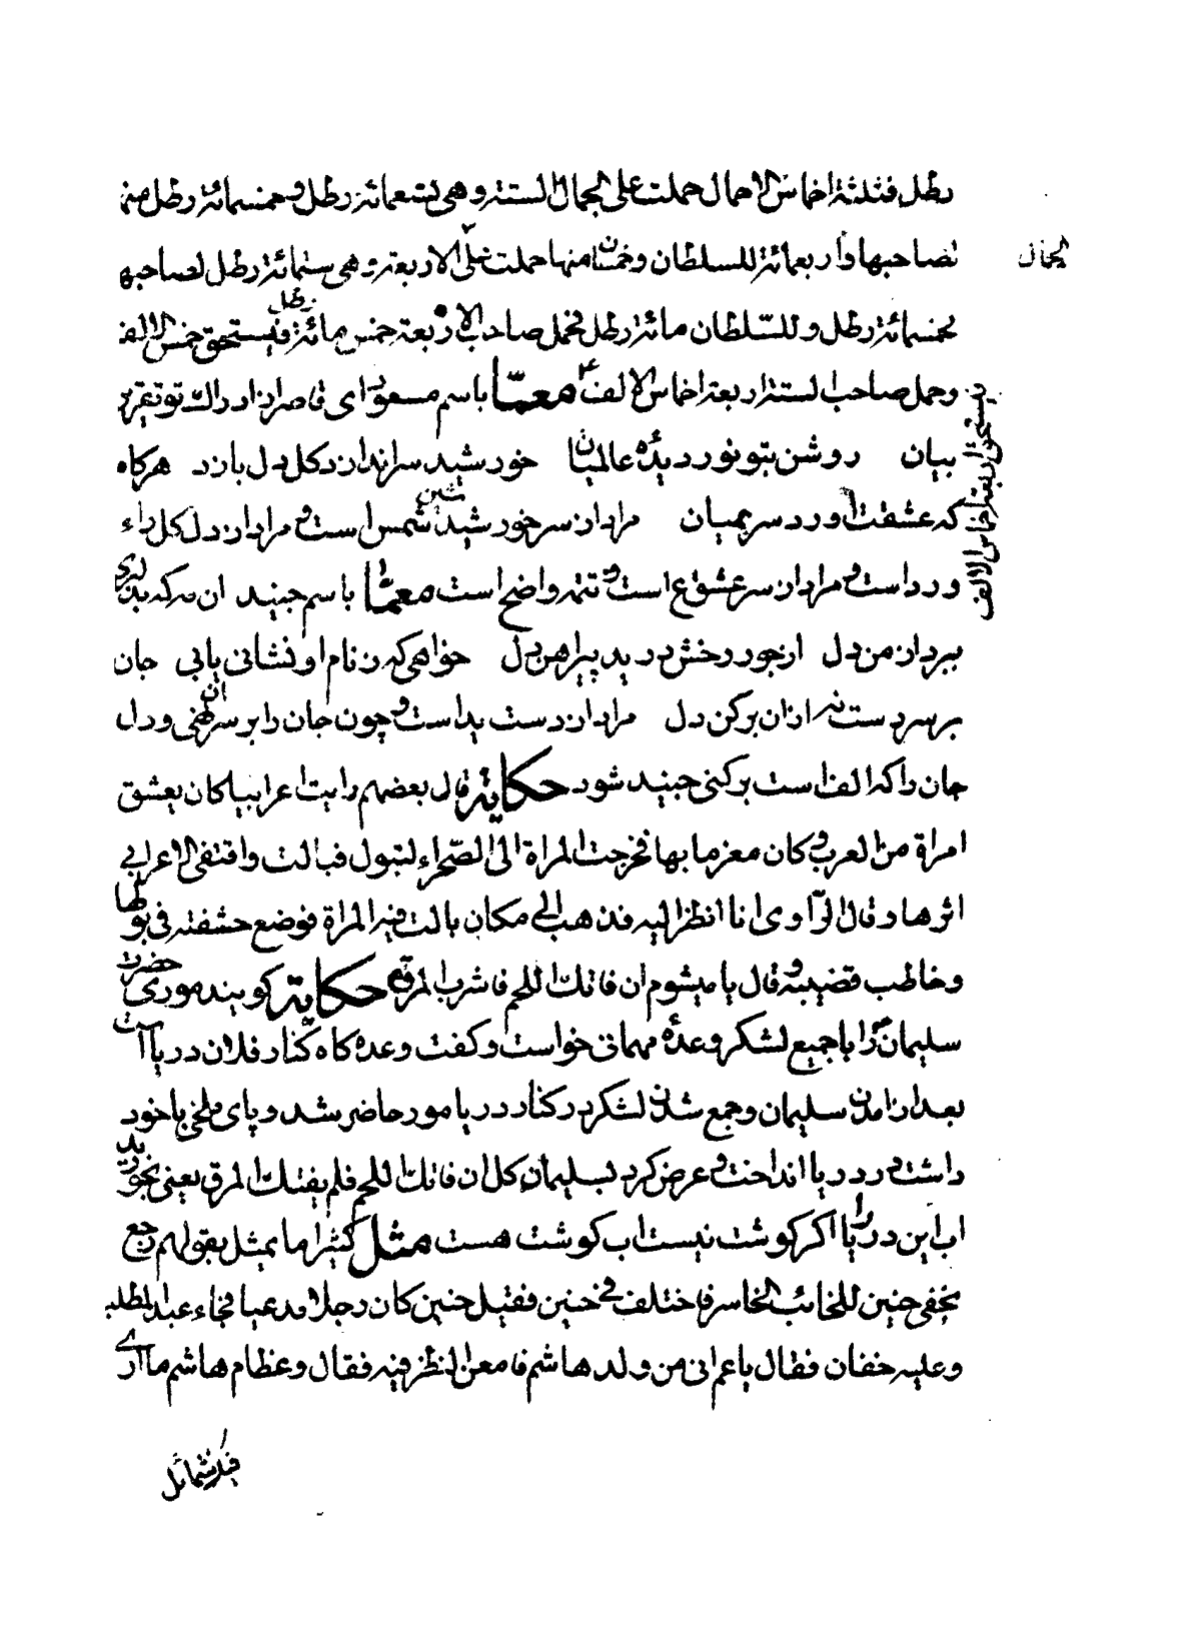 رطل فثلثة اخماس الاحمال حملت على الجمال الستة وهی تسعمائة رطل وخمسمائة رطل منها
لصاحبها واربعمائة للسلطان وخمسان منها حملت علی الاربعة وهی ستمائة رطل لصاحبها
الجمال
خمسمائة رطل وللسلطان مائة رطل فحمل صاحب الاربعة خمس مائة رطل فیستحق خمس الالف
وحمل صاحب الستة اربعة اخماس الالف معمّا باسم مسعود ای قاصر از ادراك تو تقریر
یستحق اربعة اخماس الالف
بیان روشن بتو نور دیدهٔ عالمیان خورشید سرانداز دکل دل بازد هرکاه
که عشقت آورد سر بمیان مراد از سر خورشید شین شمس است و مراد از دل کل راء
ورد است و مراد از سر عشق ع است و تتمه واضح است معمّا باسم جنید ان مه که بدلبری
ببرد از من دل از جور رخش درید پیراهن دل خواهی که ز نام او نشانی یابی جان
بر سر دست نه از ان برکن دل مراد از دست ید است و چون جان را بر سر ان نهی و دل
جان را که الف است برکنی جنید شود حکایة قال بعضهم رایت اعرابیا کان یعشق
امراة من العرب و کان مغرما بها فخرجت المراة الی الصحراء لتبول فبالت واقتفی الاعرابی
اثرها و قال الراوی انا انظر الیه فذهب الی مکان بالت فیه المراة فوضع حشفته فی بولها
وخاطب قضیبه و قال یا میشوم ان فاتك اللحم فاشرب المرق حکایة کویند موری حضرت
سلیمان را با جمیع لشکر وعدهٔ مهمانی خواست و کفت وعده کاه کنار فلان دریا است
بعد از امدن سلیمان و جمع شدن لشکر در کنار دریا مور حاضر شد و پای ملخی با خود
داشت در دریا انداخت و عرض کرد بسلیمان کل ان فاتك اللحم فلم یفتك المرق یعنی بخورید
اب این دریا را اکر کوشت نیست اب کوشت هست مثل کثیرا ما یمثل بقولهم رجع
بخفی حنین للخائب الخاسر فاختلف فی حنین فقیل حنین کان رجلا مدعیا فجاء عبد المطلب
وعلیه خفان فقال یا عم انی من ولد هاشم فامعن النظر فیه فقال وعظام هاشم ما اری
فیك شمائل